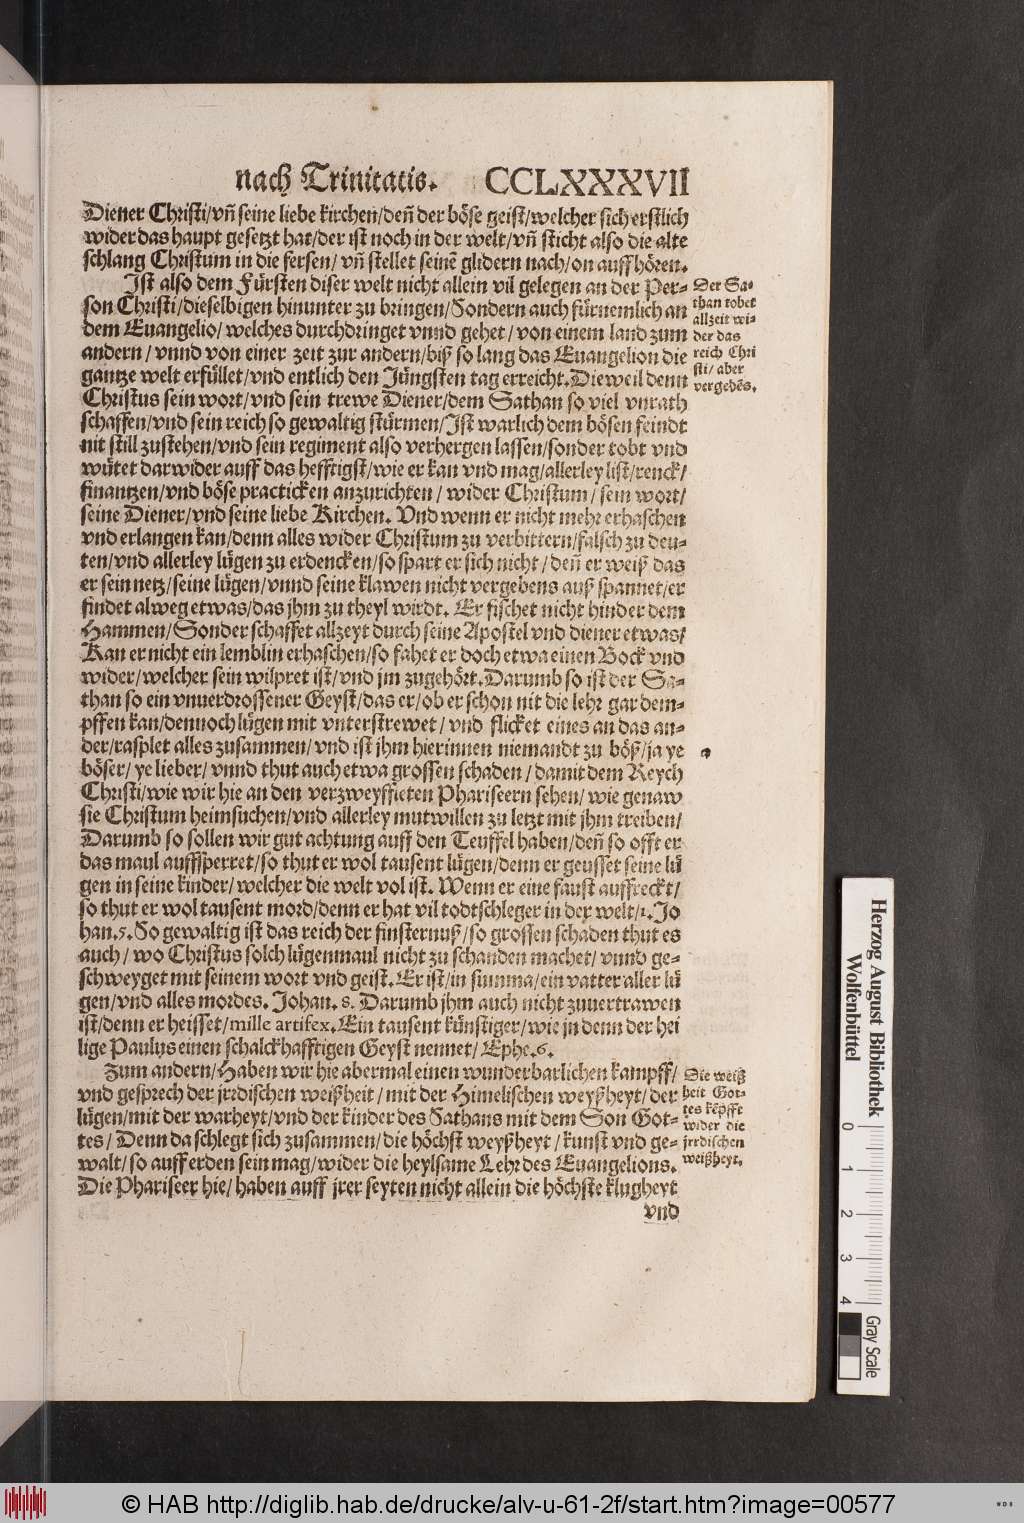 nach Trinitatis. CCLXXXVII
Diener Christi/vñ seine liebe kirchen/deñ der böse geist/welcher sich erstlich
wider das haupt gesetzt hat/der ist noch in der welt/vñ sticht also die alte
schlang Christum in die fersen/vñ stellet seinẽ glidern nach/on auffhören.
Ist also dem Fürsten diser welt nicht allein vil gelegen an der Per-
son Christi/dieselbigen hinunter zu bringen/Sondern auch fürnemlich an
dem Euangelio/welches durchdringet vnnd gehet/von einem land zum
andern/vnnd von einer zeit zur andern/biß so lang das Euangelion die
gantze welt erfüllet/vnd entlich den Jüngsten tag erreicht. Dieweil denn
Christus sein wort/vnd sein trewe Diener/dem Sathan so viel vnrath
schaffen/vnd sein reich so gewaltig stürmen/Ist warlich dem bösen feindt
nit still zustehen/vnd sein regiment also verhergen lassen/sonder tobt vnd
wütet darwider auff das hefftigst/wie er kan vnd mag/allerley list/renck/
finantzen/vnd böse practicken anzurichten/wider Christum/sein wort/
seine Diener/vnd seine liebe Kirchen. Vnd wenn er nicht mehr erhaschen
vnd erlangen kan/denn alles wider Christum zu verbittern/falsch zu deu-
ten/vnd allerley lügen zu erdencken/so spart er sich nicht/deñ er weiß das
er sein netz/seine lügen/vnnd seine klawen nicht vergebens auß spannet/er
findet alweg etwas/das jhm zu theyl wirdt. Er fischet nicht hinder dem
Hammen/Sonder schaffet allzeyt durch seine Apostel vnd diener etwas/
Kan er nicht ein lemblin erhaschen/so fahet er doch etwa einen Bock vnd
wider/welcher sein wilpret ist/vnd jm zugehört. Darumb so ist der Sa-
than so ein vnuerdrossener Geyst/das er/ob er schon nit die lehr gar dem-
pffen kan/dennoch lügen mit vnterstrewet/vnd flicket eines an das an-
der/rasplet alles zusammen/vnd ist jhm hierinnen niemandt zu böß/ja ye
böser/ye lieber/vnnd thut auch etwa grossen schaden/damit dem Reych
Christi/wie wir hie an den verzweyffleten Phariseern sehen/wie genaw
sie Christum heimsuchen/vnd allerley mutwillen zu letzt mit jhm treiben/
Darumb so sollen wir gut achtung auff den Teuffel haben/deñ so offt er
das maul auffsperret/so thut er wol tausent lügen/denn er geusset seine lü
gen in seine kinder/welcher die welt vol ist. Wenn er eine faust auffreckt/
so thut er wol tausent mord/denn er hat vil todtschleger in der welt/1. Jo
han. 5. So gewaltig ist das reich der finsternuß/so grossen schaden thut es
auch/wo Christus solch lügenmaul nicht zu schanden machet/vnnd ge-
schweyget mit seinem wort vnd geist. Er ist/in summa/ein vatter aller lü
gen/vnd alles mordes. Johan. 8. Darumb jhm auch nicht zuuertrawen
ist/denn er heisset/mille artifex. Ein tausent künstiger/wie jn denn der hei
lige Paulus einen schalckhafftigen Geyst nennet/Ephe. 6.
Zum andern/Haben wir hie abermal einen wunderbarlichen kampff/
vnd gesprech der jrrdischen weißheit/mit der Himelischen weyßheyt/der
lügen/mit der warheyt/vnd der kinder des Sathans mit dem Son Got-
tes/Denn da schlegt sich zusammen/die höchst weyßheyt/kunst vnd ge-
walt/so auff erden sein mag/wider die heylsame Lehr des Euangelions.
Die Phariseer hie/haben auff jrer seyten nicht allein die höchste klugheyt
vnd
Der Sa-
than tobet
allzeit wi-
der das
reich Chri
sti/aber
vergebẽs.
Die weiß
heit Got-
tes kẽpfft
wider die
jrrdischen
weißheyt.
Herzog August Bibliothek
Wolfenbüttel
0 1 2 3 4
Gray Scale
© HAB http://diglib.hab.de/drucke/alv-u-61-2f/start.htm?image=00577